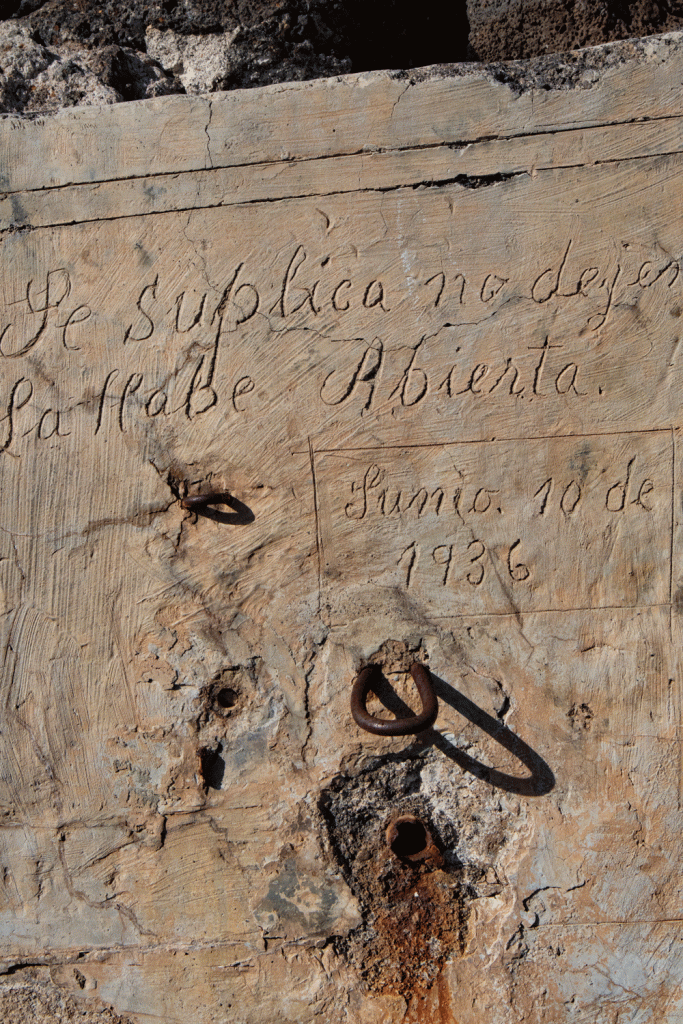 Se Suplica no dejen
La Llabe Abierta.
Junio. 10 de
1936